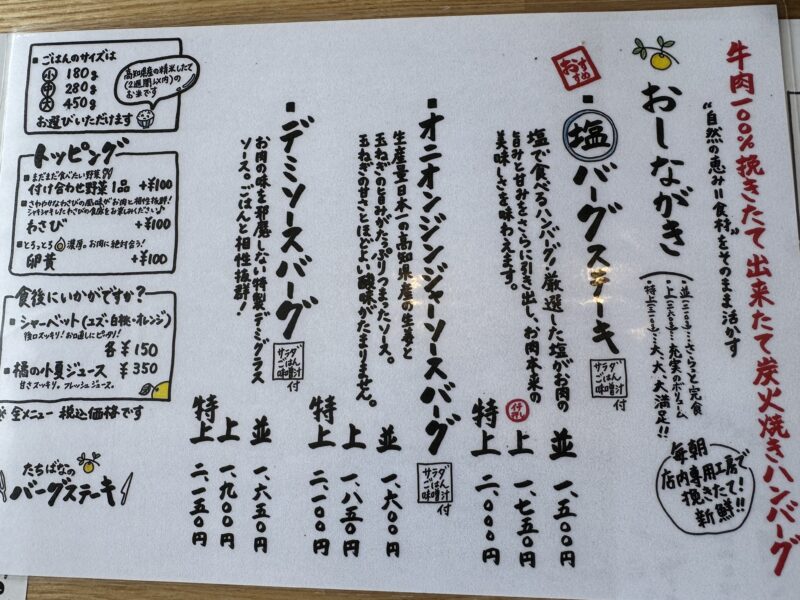 牛肉一〇〇%挽きたて出来たて炭火焼きハンバーグ
"自然の恵み=食材"をそのまま活かす
おしながき
並(二一〇g)…さらっと完食
上(二六〇g)…充実のボリューム
特上(三一〇g)…大、大、大満足!!
毎朝
店内専用工房で
挽きたて!
新鮮!!
おすすめ
塩バーグステーキ
サラダ
ごはん
味噌汁
付
塩で食べるハンバーグ!厳選した塩がお肉の
旨みと甘みをさらに引き出し、お肉本来の
美味しさを味わえます。
並 一、五〇〇円
イチ押し
上 一、七五〇円
特上 二、〇〇〇円
オニオンジンジャーソースバーグ
サラダ
ごはん
味噌汁
付
生産量日本一の高知県産の生姜と
玉ねぎの旨みがたっぷりつまったソース。
玉ねぎの甘さとほどよい酸味がたまりません。
並 一、六〇〇円
上 一、八五〇円
特上 二、一〇〇円
デミソースバーグ
サラダ
ごはん
味噌汁
付
お肉の味を邪魔しない特製デミグラス
ソース。ごはんと相性抜群!
並 一、六五〇円
上 一、九〇〇円
特上 二、一五〇円
ごはんのサイズは
小 180g
中 280g
大 450g
お選びいただけます
高知県産の精米したて
(2週間以内)の
お米です
トッピング
まだまだ食べたい野菜
付け合わせ野菜1品 +¥100
さわやかなわさびの風味がお肉と相性抜群!
シャキシャキしたわさびの食感をお楽しみください♪
わさび +¥100
とろっとろ 濃厚。お肉に絶対合う!
卵黄 +¥100
食後にいかがですか?
シャーベット(ユズ・白桃・オレンジ)
後口スッキリ!お口直しにピッタリ!
各¥150
橘の小夏ジュース ¥350
甘さスッキリ。フレッシュジュース。
※全メニュー 税込価格です
たちばなの
バーグステーキ